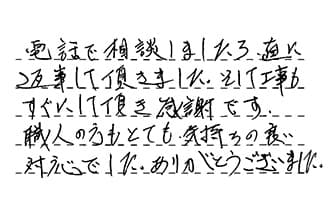 電話で相談しましたら直に
返事して頂きました。そして工事も
すぐにして頂き感謝です。
職人の方もとても気持ちの良い
対応でした。ありがとうございました。